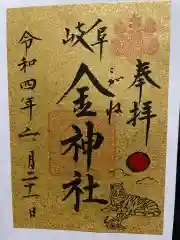 奉拝
岐阜
こがね
金神社
令和四年二月二十一日